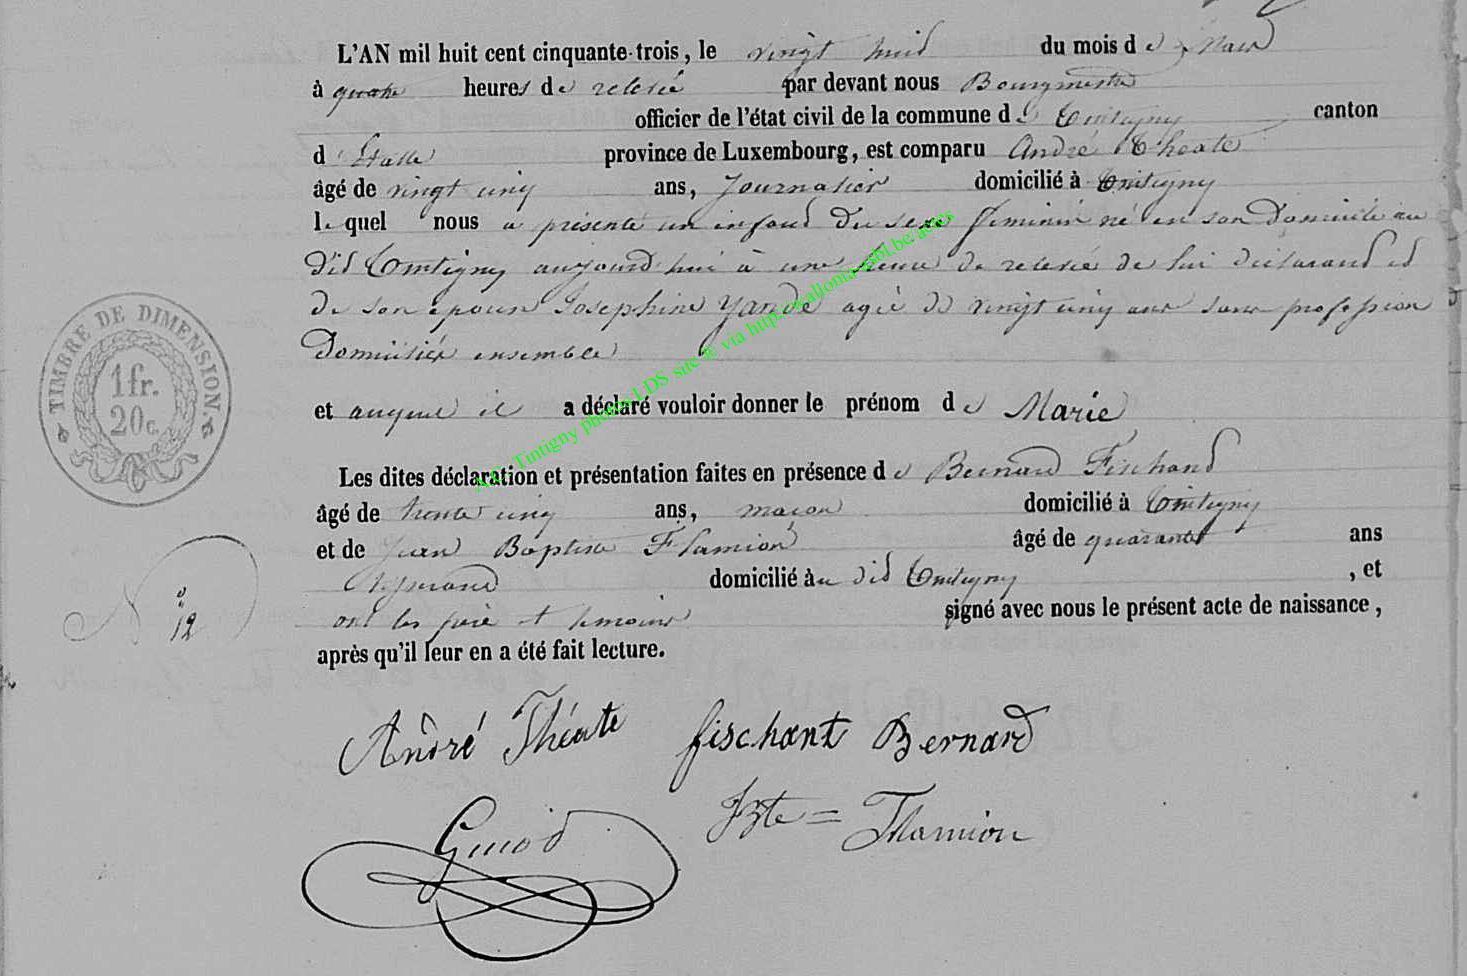 L'AN mil huit cent cinquante-trois, le vingt huit du mois de Mars
à quatre heures de relevée par devant nous Bourgmestre
officier de l'état civil de la commune de Tintigny canton
d'Etalle province de Luxembourg, est comparu André Théate
âgé de vingt cinq ans, Journalier domicilié à Tintigny
lequel nous a présenté un enfant du sexe féminin né en son domicile au
dit Tintigny aujourd'hui à une heure de relevée de lui déclarant et
de son épouse Josephine Yande agée de vingt cinq ans sans profession
Domiciliés ensemble
et auquel il a déclaré vouloir donner le prénom de Marie
TIMBRE DE DIMENSION.
1fr.
20c.
Les dites déclaration et présentation faites en présence de Bernard Fischand
âgé de trente cinq ans, maçon domicilié à Tintigny
et de Jean Baptiste Flamion âgé de quarante ans
domicilié au dit Tintigny, et
N° 12
ont les père et témoins signé avec nous le présent acte de naissance,
après qu'il leur en a été fait lecture.
André Théate fischant Bernard
JBte = Flamion
A.C. Tintigny photos LDS suc © via http://wallonia-asbl.be/actes